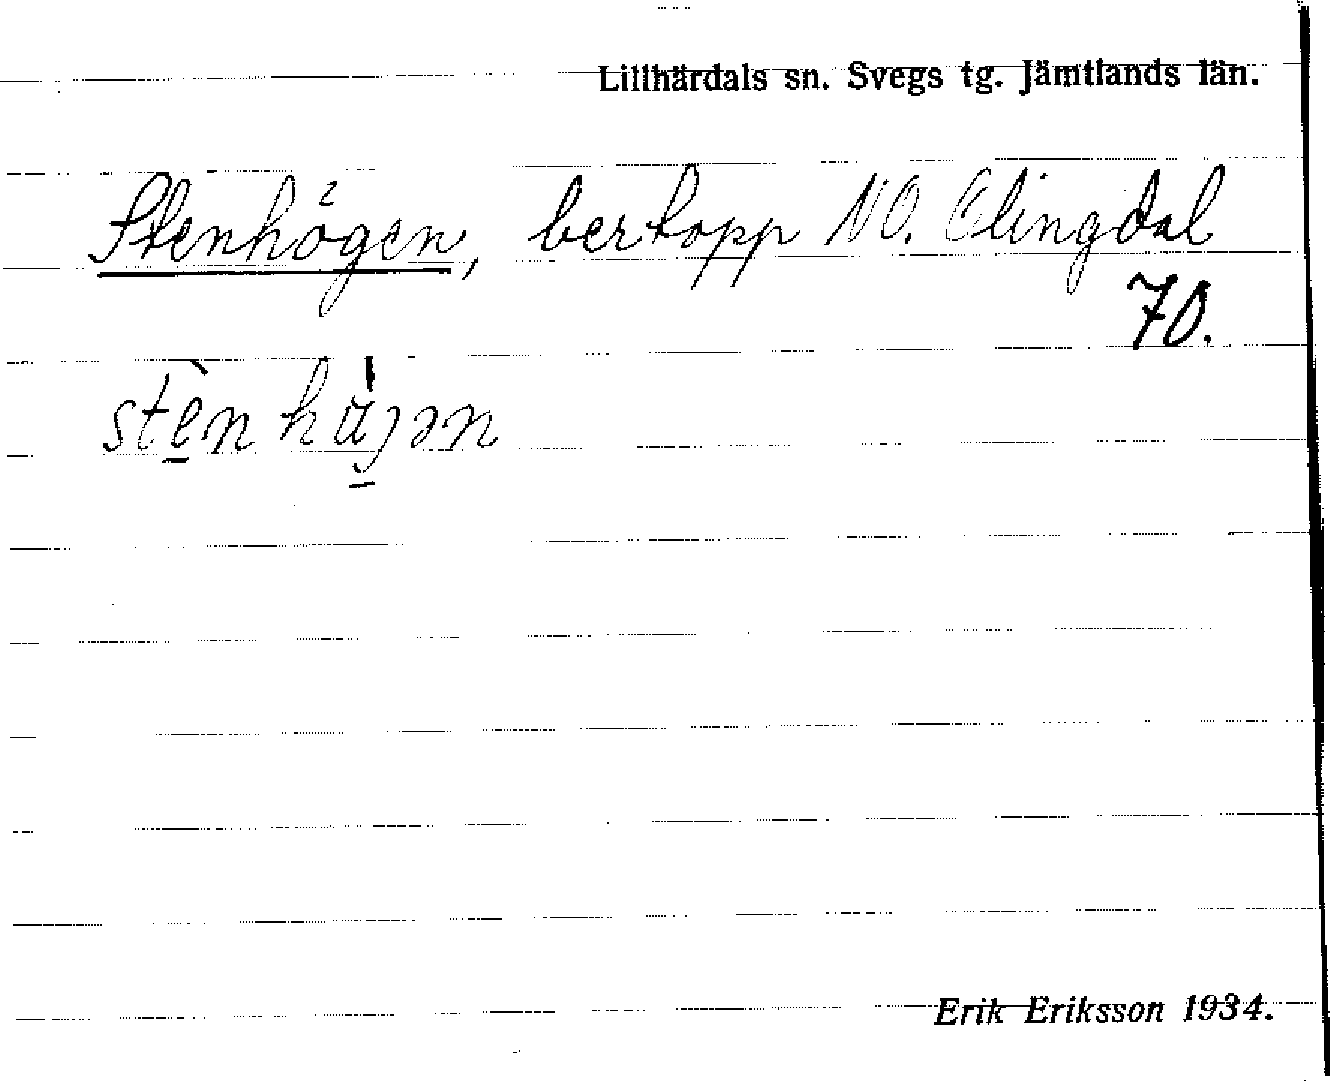 Lillhärdals sn. Svegs tg. Jämtlands län.
Stenhögen, bertopp NO. Olingdal
70.
stèn hä́jən
Erik Eriksson 1934.